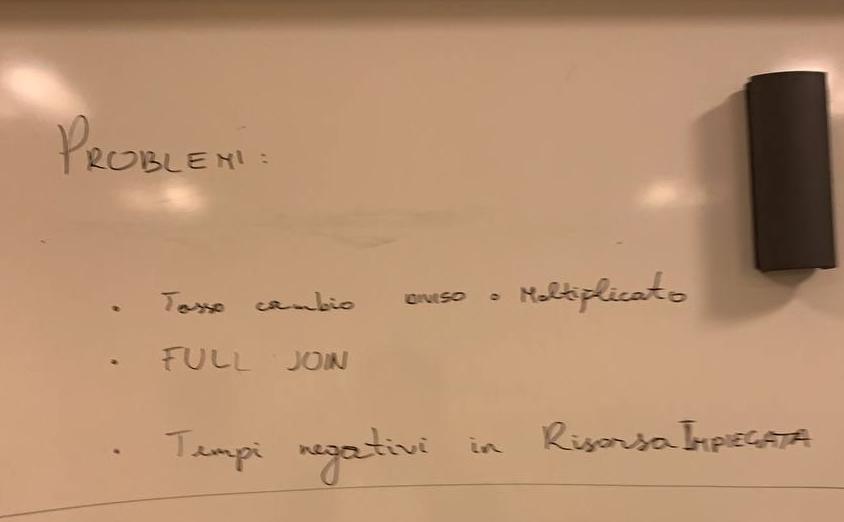 PROBLEMI:
• Tasso cambio diviso o Moltiplicato
• FULL JOIN
• Tempi negativi in RisorsaIMPIEGATA